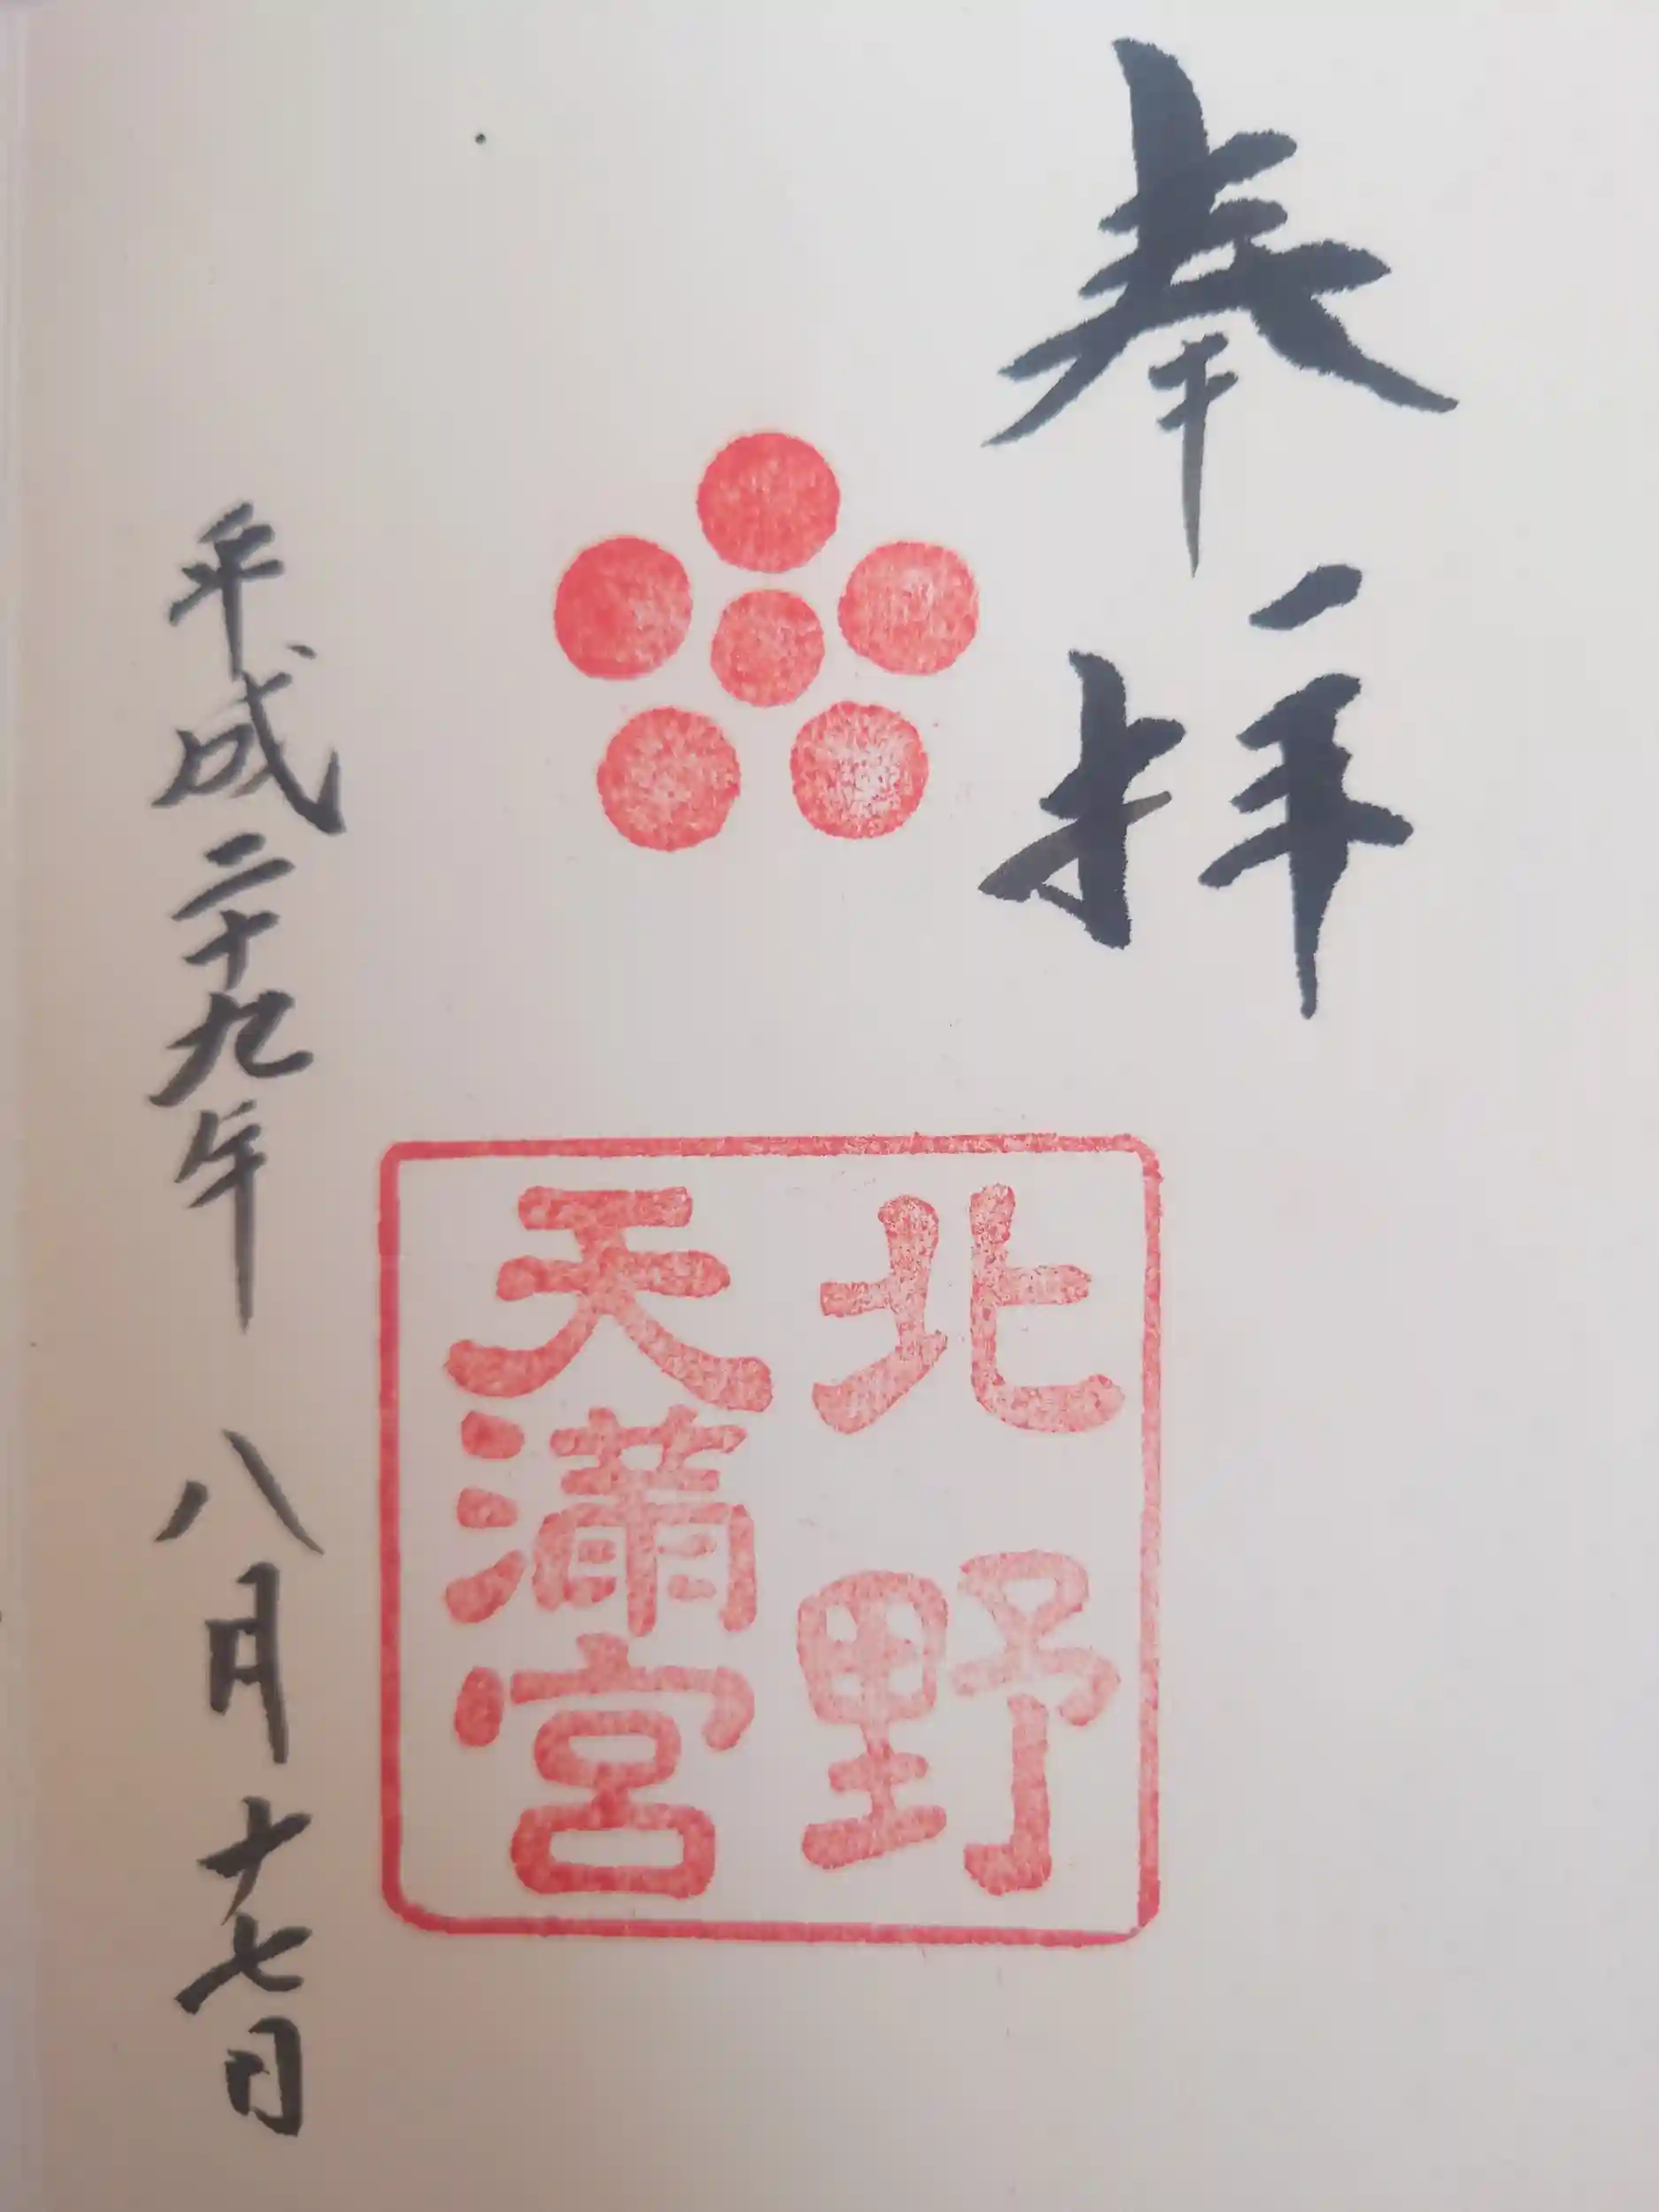 奉拝
北野
天満宮
平成二十九年 八月十七日